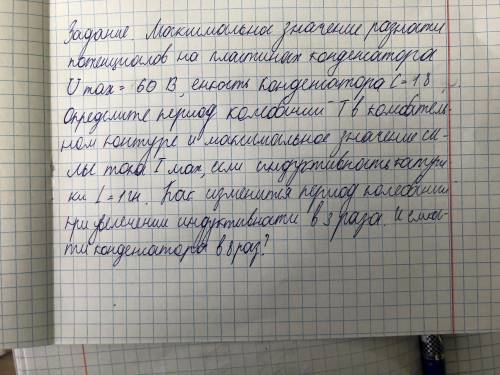 Задание. Максимальное значение разности
потенциалов на пластинах конденсатора
U max = 60 В, емкость конденсатора C = 18
Определите период колебаний T в колебатель-
ном контуре и максимальное значение си-
лы тока I мах, если индуктивность катуш-
ки L = 1 Гн. Как изменится период колебаний
при увеличении индуктивности в 3 раза. И емкос-
ти конденсатора в 8 раз?